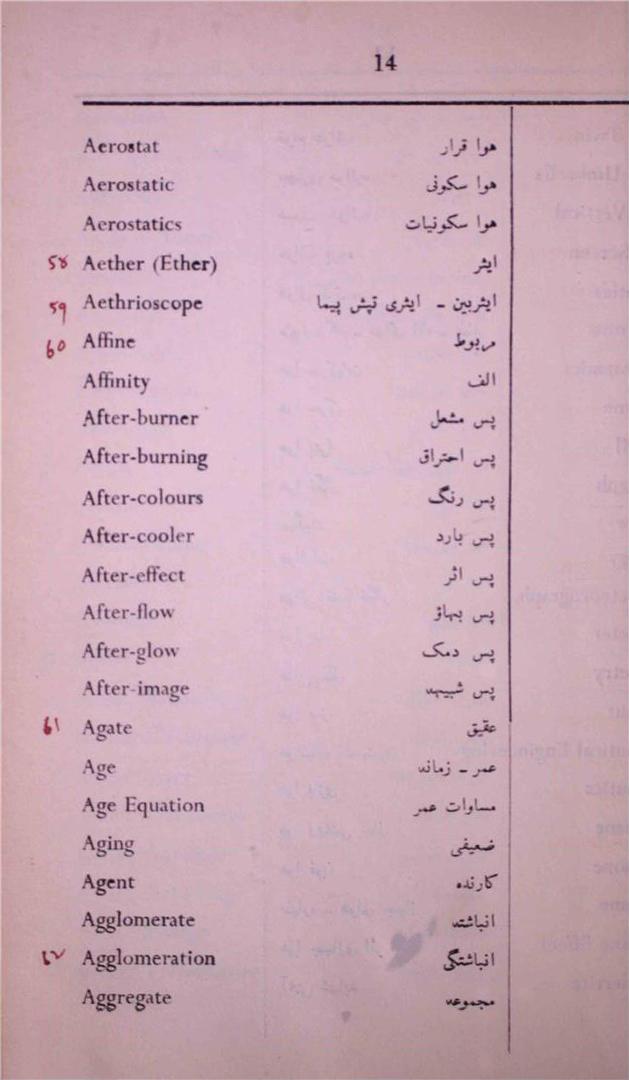 14
Aerostat هوا قرار
Aerostatic هوا سکونی
Aerostatics هوا سکونیات
58 Aether (Ether) ایثر
59 Aethrioscope ایثربین ـ ایثری تپش پیما
60 Affine مربوط
Affinity الف
After-burner پس مشعل
After-burning پس احتراق
After-colours پس رنگ
After-cooler پس بارد
After-effect پس اثر
After-flow پس بہاؤ
After-glow پس دمک
After-image پس شبیہہ
61 Agate عقیق
Age عمر ـ زمانہ
Age Equation مساوات عمر
Aging ضعیفی
Agent کارندہ
Agglomerate انباشتہ
62 Agglomeration انباشتگی
Aggregate مجموعہ